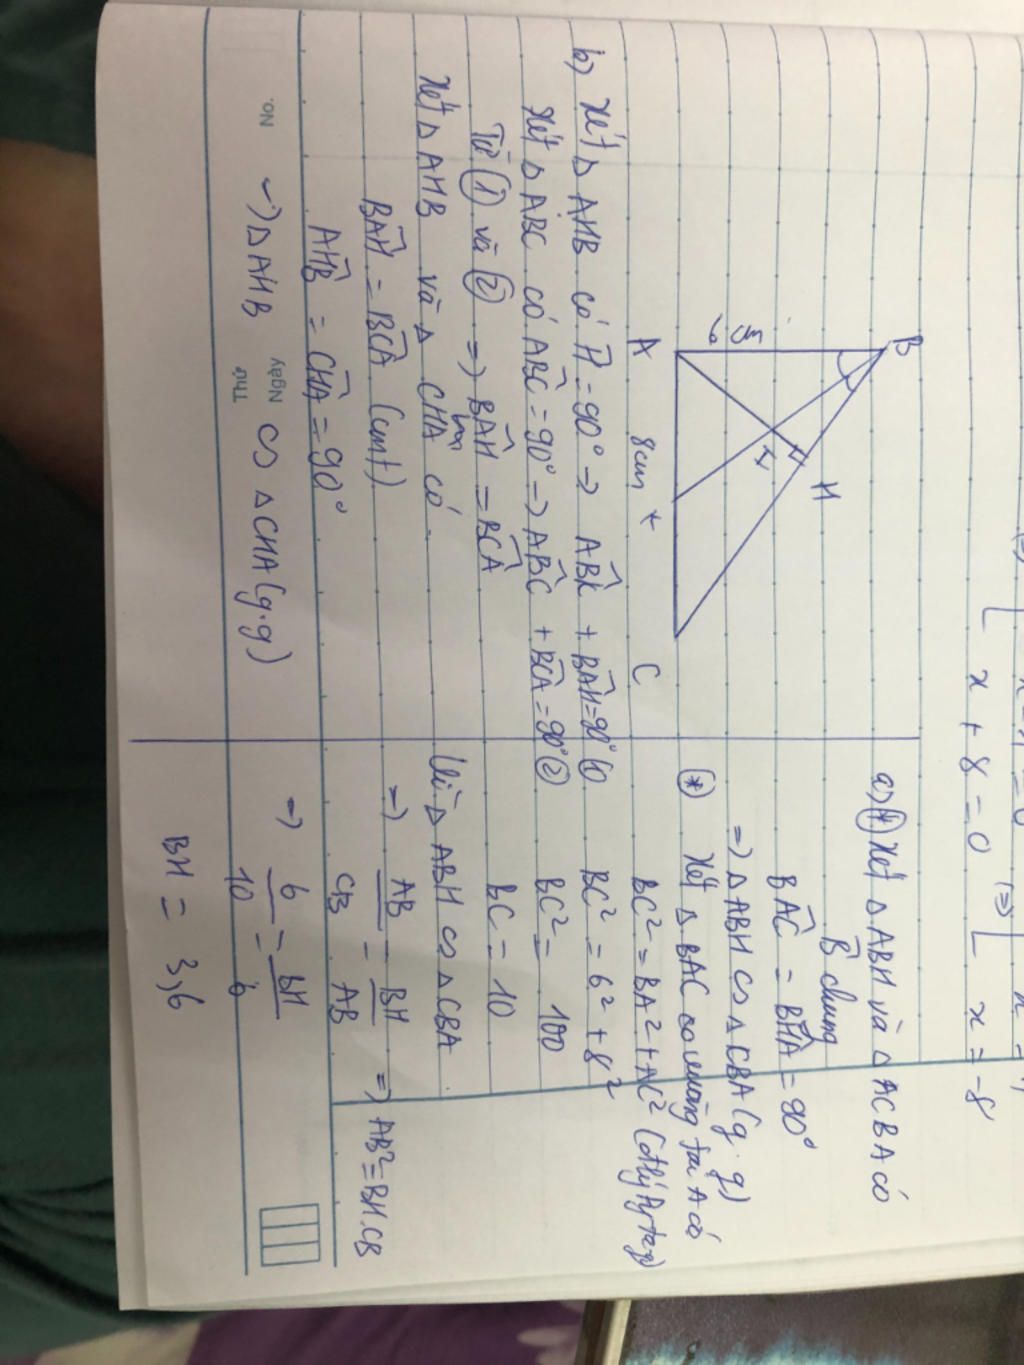 x + 8 = 0
x = -8
B
6 cm
H
I
A
8cm
K
C
a) (*) Xét Δ ABH và Δ CBA có
B̂ chung
BAC = BHA = 90°
=> Δ ABH ∽ Δ CBA (g.g)
(*) Xét Δ BAC vuông tại A có
BC² = BA² + AC² (đlý Pytago)
BC² = 6² + 8²
BC² = 100
BC = 10
Vì Δ ABH ∽ Δ CBA
=> AB/CB = BH/AB => AB² = BH.CB
=> 6/10 = BH/6
BH = 3,6
b) Xét Δ AHB có Ĥ = 90° => ABH + BAH = 90° (1)
Xét Δ ABC có ABC = 90° => ABC + BCA = 90° (2)
Từ (1) và (2) => BAH = BCA
Xét Δ AHB và Δ CHA có
BAH = BCA (cmt)
AHB = CHA = 90°
=> Δ AHB ∽ Δ CHA (g.g)
No.
Ngày
Thứ